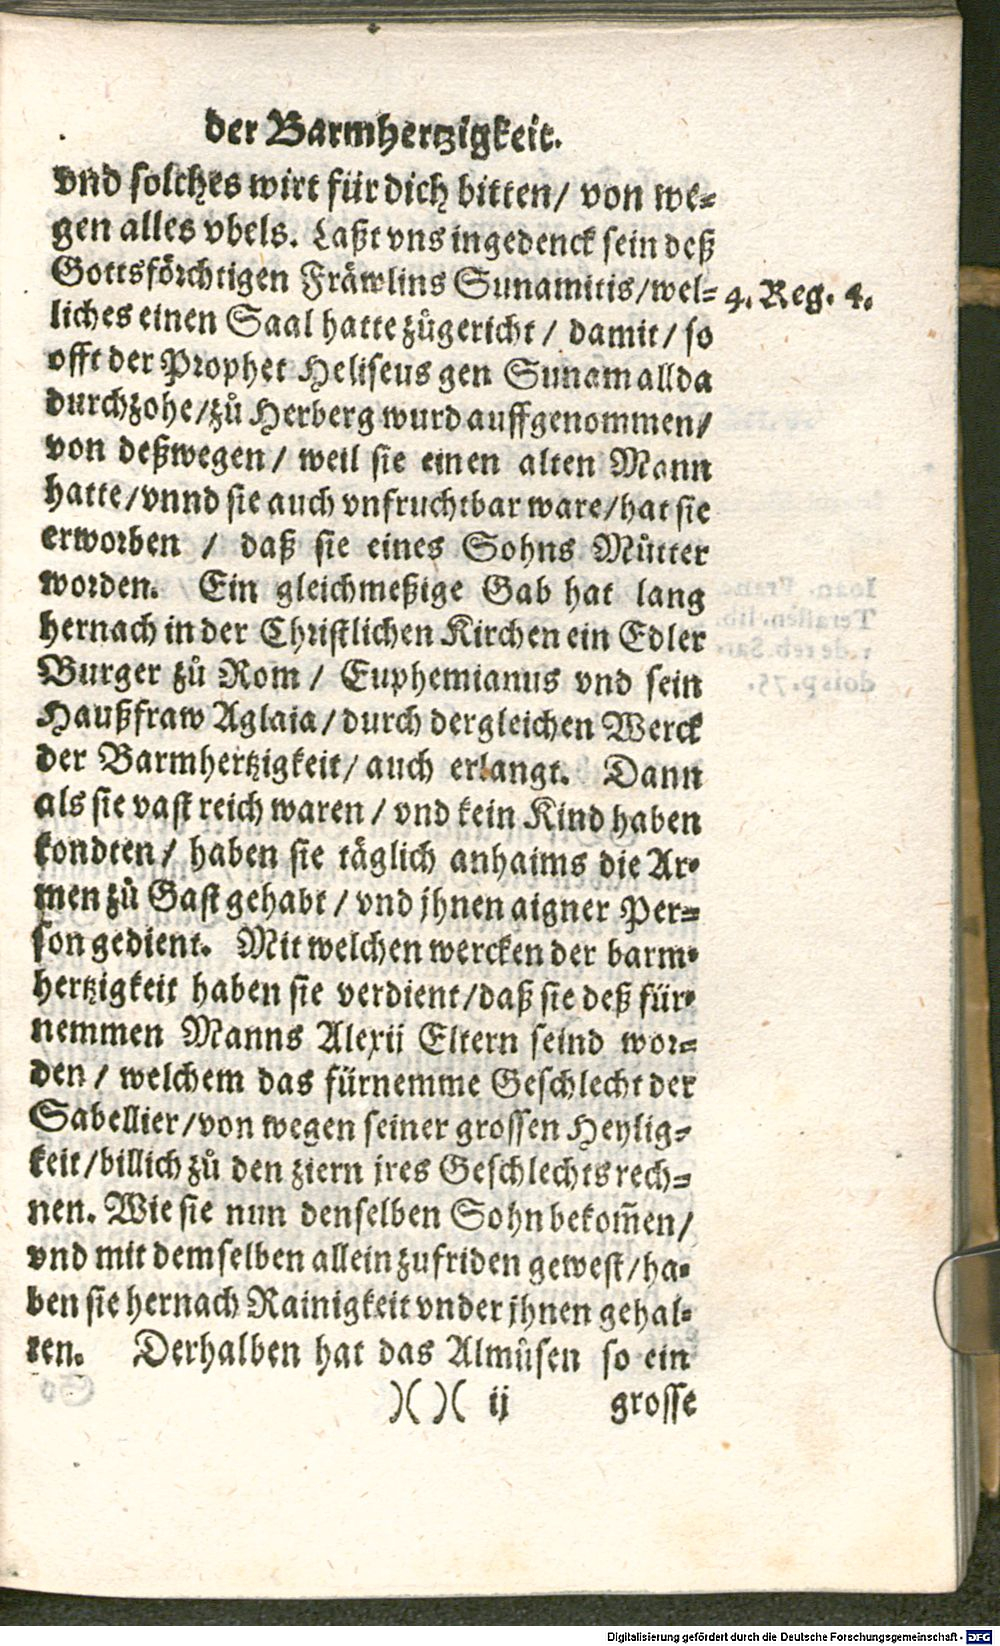 der Barmhertzigkeit.
vnd solches wirt für dich bitten/ von we⸗
gen alles vbels. Laßt vns ingedenck sein deß
Gottsförchtigen Fräwlins Sunamitis/wel⸗
4. Reg. 4.
liches einen Saal hatte zůgericht/ damit/ so
offt der Prophet Heliseus gen Sunam allda
durchzohe/zů Herberg wurd auffgenommen/
von deßwegen/ weil sie einen alten Mann
hatte/vnnd sie auch vnfruchtbar ware/hat sie
erworben / daß sie eines Sohns Můtter
worden. Ein gleichmeßige Gab hat lang
hernach in der Christlichen Kirchen ein Edler
Burger zů Rom / Euphemianus vnd sein
Haußfraw Aglaia/durch dergleichen Werck
der Barmhertzigkeit/ auch erlangt. Dann
als sie vast reich waren / vnd kein Kind haben
kondten/ haben sie täglich anhaims die Ar⸗
men zů Gast gehabt / vnd jhnen aigner Per⸗
son gedient. Mit welchen wercken der barm⸗
hertzigkeit haben sie verdient/daß sie deß für⸗
nemmen Manns Alexii Eltern seind wor⸗
den / welchem das fürnemme Geschlecht der
Sabellier/von wegen seiner grossen Heylig⸗
keit/billich zů den ziern jres Geschlechts rech⸗
nen. Wie sie nun denselben Sohn bekom̃en/
vnd mit demselben allein zufriden gewest/ha⸗
ben sie hernach Rainigkeit vnder jhnen gehal⸗
ten. Derhalben hat das Almůsen so ein
)( )( ij grosse
Digitalisierung gefördert durch die Deutsche Forschungsgemeinschaft - DFG